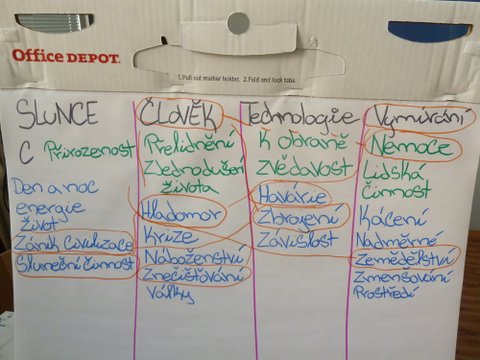 Office DEPOT.
1. Pull out marker holder. 2. Fold and lock tabs.
SLUNCE
C Přirozenost
Den a noc
energie
život
Zánik civilizace
Sluneční činnost
ČLOVĚK
Přelidnění
Zjednodušení
života
Hladomor
Krize
Náboženství
Znečišťování
Války
Technologie
K obraně
Zvědavost
Havárie
Zbrojení
Závislost
Vymírání
Nemoce
Lidská
činnost
Kácení
Nadměrné
Zemědělství
Zmenšování
Prostředí